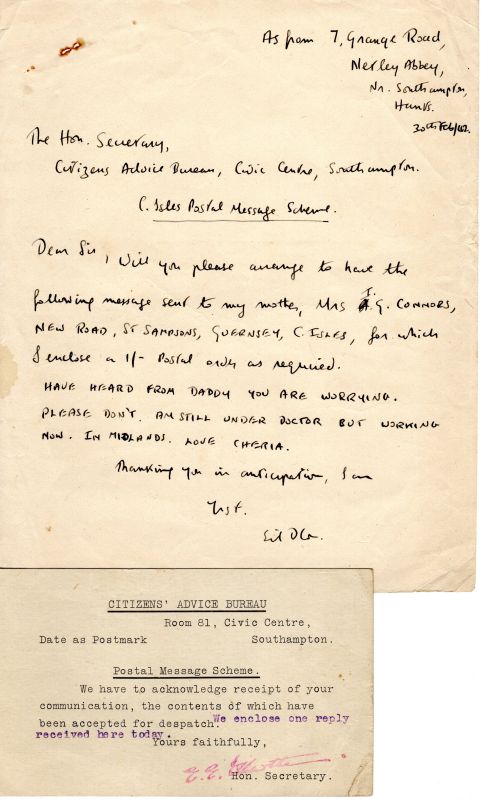 As from 7, Grange Road,
Netley Abbey,
Nr. Southampton,
Hants.
30th Feb/42.
The Hon. Secretary,
Citizens Advice Bureau, Civic Centre, Southampton.
C. Isles Postal Message Scheme.
Dear Sir,
Will you please arrange to have the
following message sent to my mother, Mrs I. G. CONNORS,
NEW ROAD, ST SAMPSONS, GUERNSEY, C. ISLES, for which
I enclose a 1/- Postal order as required.
HAVE HEARD FROM DADDY YOU ARE WORRYING.
PLEASE DON'T. AM STILL UNDER DOCTOR BUT WORKING
NOW. IN MIDLANDS. LOVE CHERIA.
Thanking you in anticipation, I am
CITIZENS' ADVICE BUREAU
Room 81, Civic Centre,
Date as Postmark Southampton.
Postal Message Scheme.
We have to acknowledge receipt of your
communication, the contents of which have
been accepted for despatch. We enclose one reply
received here today.
Yours faithfully,
Hon. Secretary.